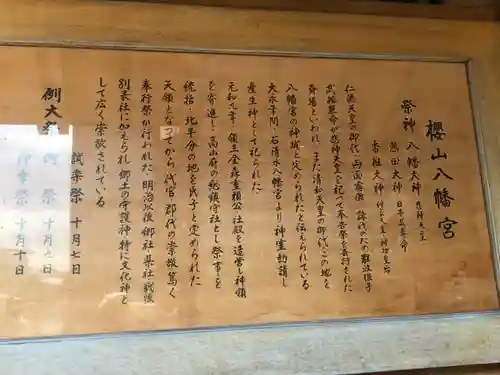 櫻山八幡宮
祭神 八幡大神 應神天皇
熱田大神 日本武尊命
香椎大神 仲哀天皇・神功皇后
仁徳天皇の御代 両面宿儺 誅伐のため難波根子
武振熊命が應神天皇を祀って奉告祭を斎行された
斉場といわれ、また清和天皇の御代この地を
八幡宮の神域と定められたと伝えられている
大永年間、石清水八幡宮より神霊勧請し
産生神として祀られた
元和九年、領主金森重頼公社殿を造営し神領
を寄進し、高山府の総鎮守社とし祭事を
統括、北半分の地を氏子と定められた
天領となってから代官郡代の崇敬篤く
奉行祭が行われた 明治以後 郷社 県社 戦後
別表社に加えられ郷土の守護神 特に文化神と
して広く崇敬されている
例大祭
試楽祭 十月七日
例祭 十月九日
神幸祭 十月十日